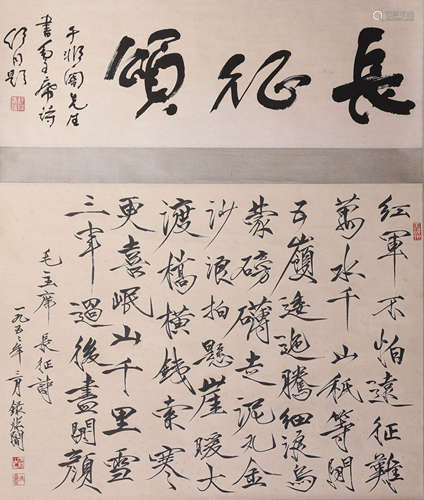 長征頌
于非闇先生
書毛主席詩
舒同題
紅軍不怕遠征難
萬水千山祇等閒
五嶺逶迤騰細浪烏
蒙磅礴走泥丸金
沙浪拍懸崖暖大
渡橋橫鐵索寒
更喜岷山千里雪
三軍過後盡開顏
毛主席 長征詩
一九五 年 月